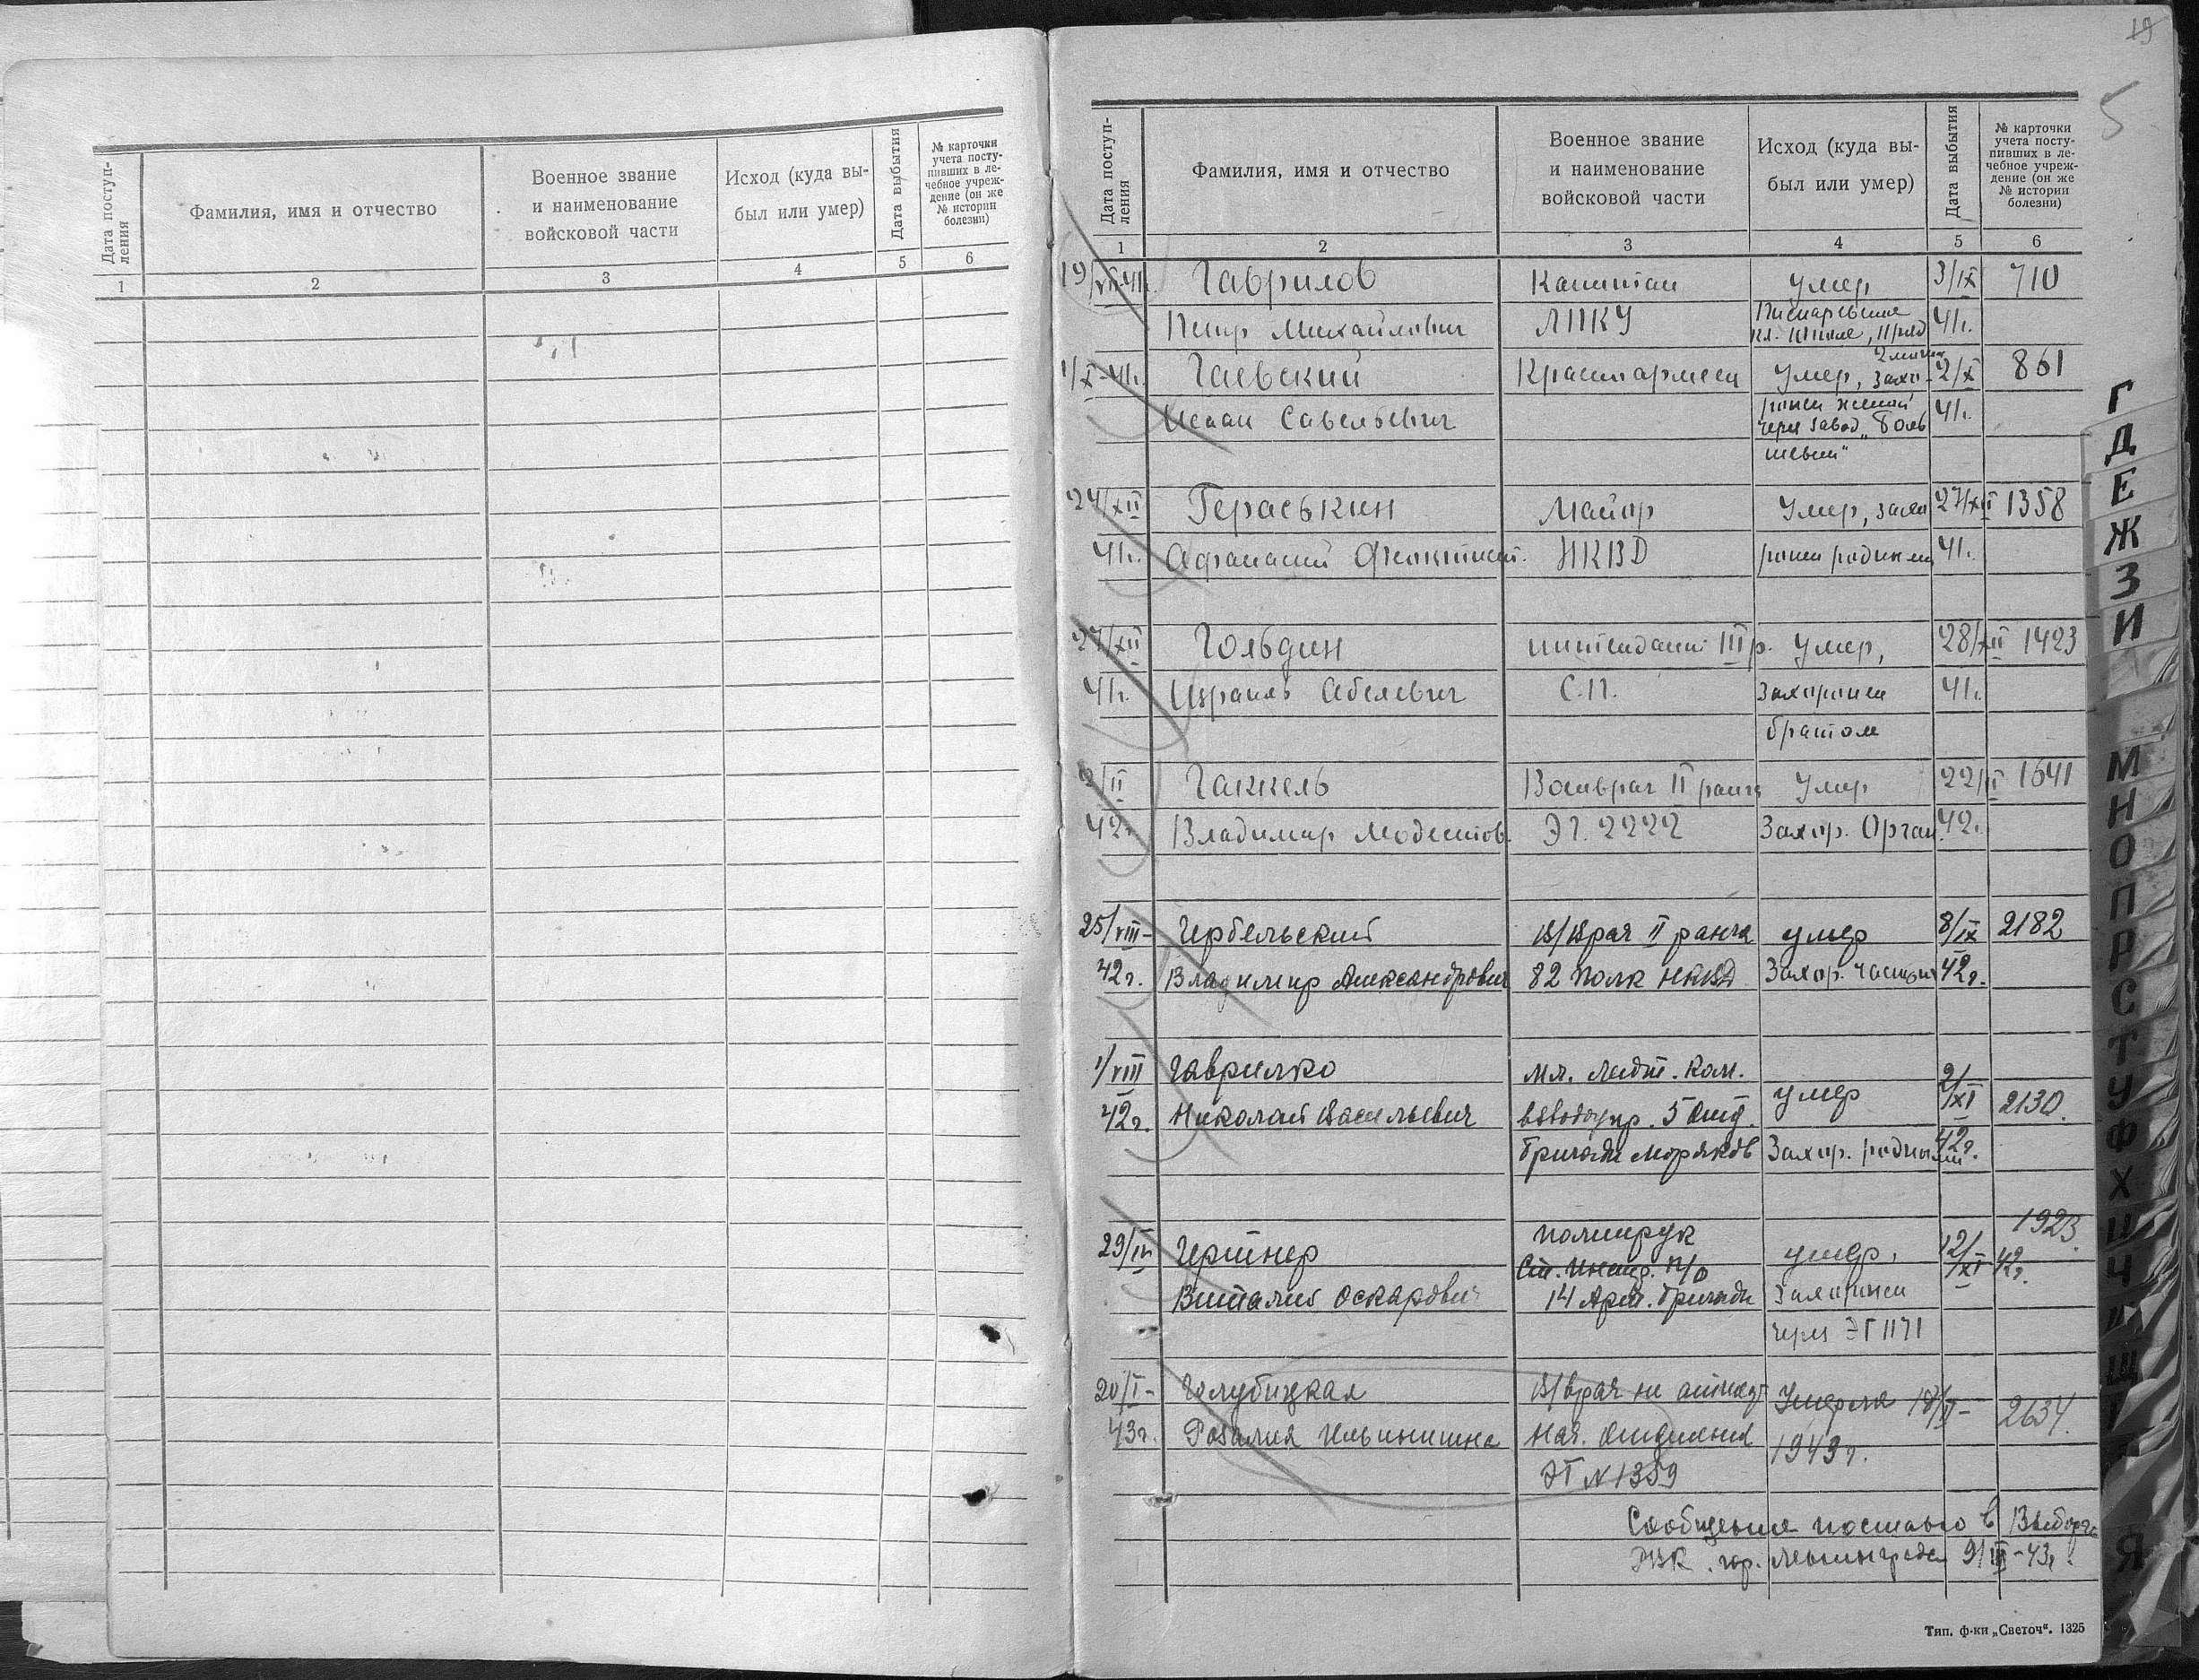 Дата поступ-
ления
Фамилия, имя и отчество
Военное звание
и наименование
войсковой части
Исход (куда вы-
был или умер)
Дата выбытия
№ карточки
учета посту-
пивших в ле-
чебное учреж-
дение (он же
№ истории
болезни)
1 2 3 4 5 6
19
5
Дата поступ-
ления
Фамилия, имя и отчество
Военное звание
и наименование
войсковой части
Исход (куда вы-
был или умер)
Дата выбытия
№ карточки
учета посту-
пивших в ле-
чебное учреж-
дение (он же
№ истории
болезни)
1 2 3 4 5 6
Гаврилов Капитан умер 3/IX 710
Петр Михайлович ЛПКУ 41г.
1/X-41г. Гаевский Красноармеец Умер, захо- 2/X 861
Савельевич ронен женой 41г.
через завод „Боль
шевик“
24/XII Гераськин Майор Умер, захо 27/XII 1358
41г. Афанасий НКВД ронен родными 41г.
27/XII Гольдин интендант III р. Умер, 28/XII 1423
41г. Израиль Абелевич С.П. Захоронен 41г.
братом
Гаккель Воинврач II ранга Умер 22/II 1641
42г. Владимир Модестов. ЭГ. 2222 Захор. Орган. 42г.
25/VIII- Гербельский В/врач II ранга умер 8/IX 2182
42г. Владимир Александрович 82 полк НКВД Захор. частью 42г.
1/VIII Гаврилко Мл. лейт. Ком.
42г. Николай Васильевич взвода упр. 5 отд. умер 2/XI 2130.
бригады моряков Захор. родными 42г.
1923
29/IV Гертнер политрук умер, 12/XI 42г.
Ст. Инстр. П/о
Виталий Оскарович 14 Арт. бригады Захоронен
через ЭГ 1171
20/I- Голубицкая В/врач не аттест Умерла 18/II- 2634.
43г. Розалия Ильинишна Нач. отделения 1943г.
ЭГ N 1359
Сообщение послано в Выборг
РВК. гор. Ленинграда 9/III-43г.
Г
Д
Е
Ж
З
И
М
Н
О
П
Р
С
Т
У
Ф
Х
Ц
Ч
Щ
Я
Тип. ф-ки „Светоч“. 1325